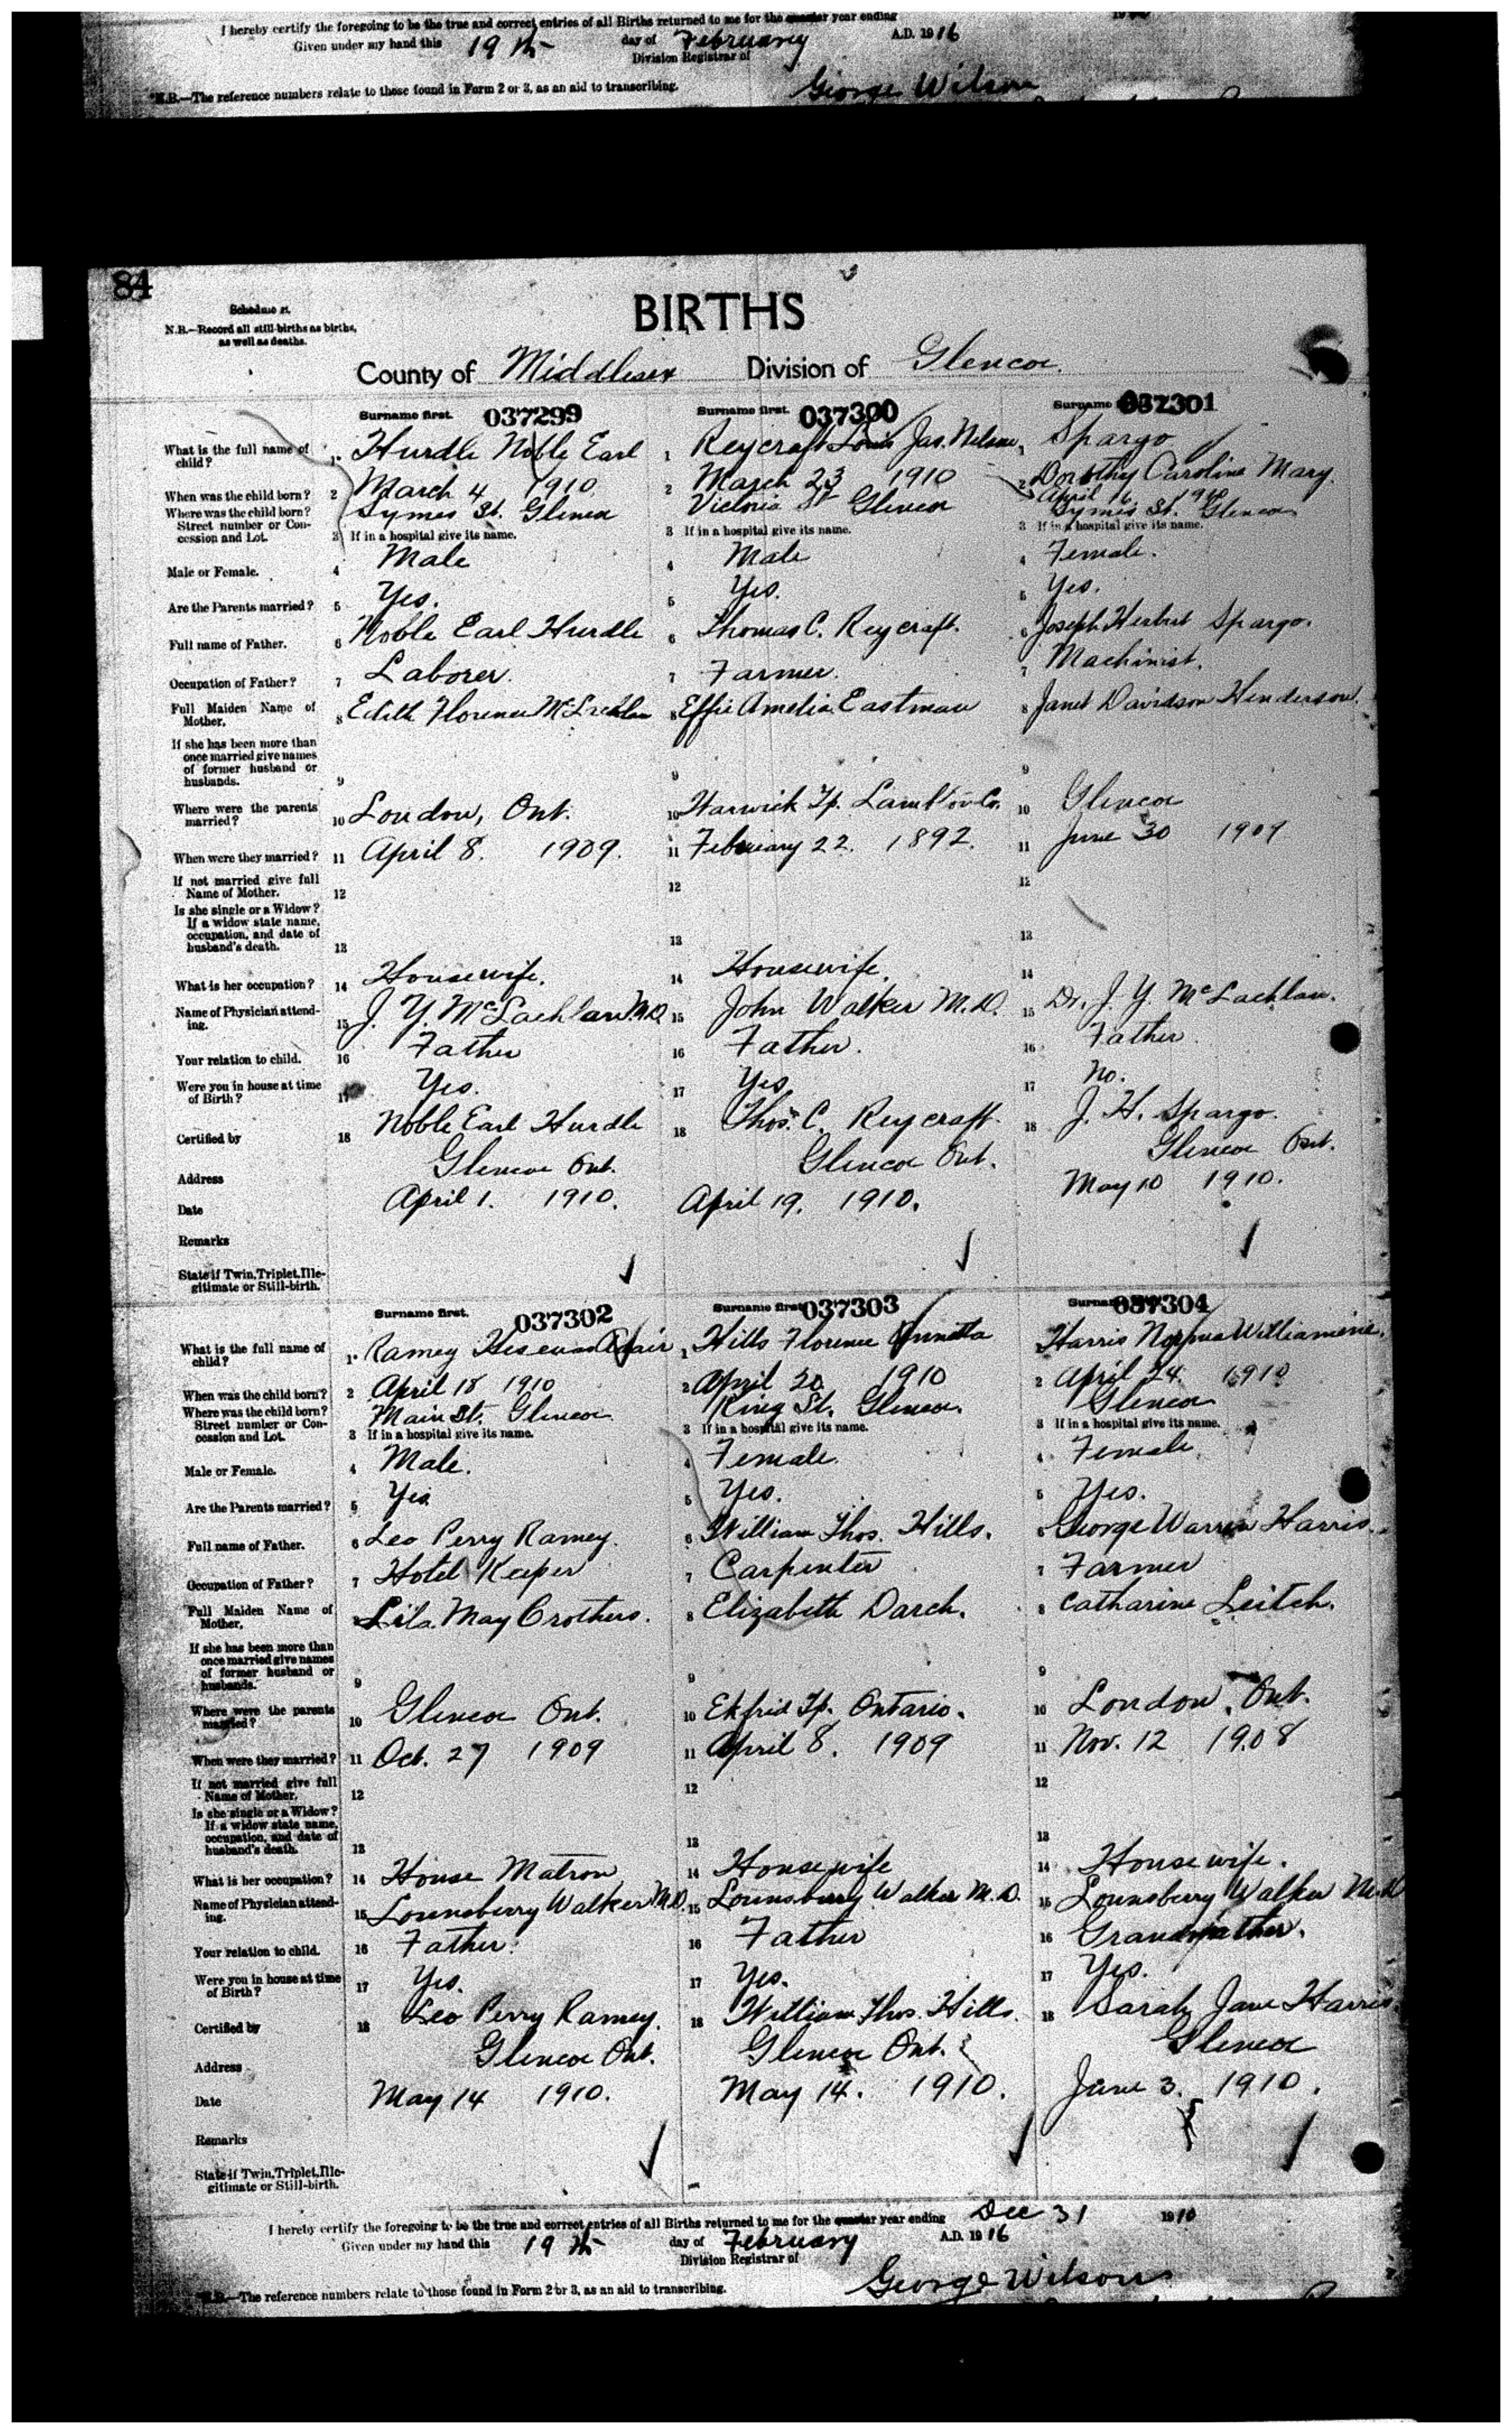 I hereby certify the foregoing to be the true and correct entries of all Births returned to me for the quarter year ending
Given under my hand this 19th day of February A.D. 1916
Division Registrar of
George Wilson
N.B.—The reference numbers relate to those found in Form 2 or 3, as an aid to transcribing.
84
N.B.—Record all still-births as births, as well as deaths.
BIRTHS
County of Middlesex Division of Glencoe.
Surname first. 037299 Surname first. 037300 Surname 037301
What is the full name of child? 1. Hurdle Noble Earl 1 Reycraft Louis Jas. Nelson, Spargo
When was the child born? 2 March 4 1910 2 March 23 1910 2 Dorothy Caroline Mary.
April 16 1910
Where was the child born? Street number or Concession and Lot. Symes St. Glencoe Victoria St Glencoe Symes St. Glencoe
3 If in a hospital give its name. 3 If in a hospital give its name. 3 If in a hospital give its name.
Male or Female. 4 Male 4 Male 4 Female.
Are the Parents married? 5 Yes. 5 Yes. 5 Yes.
Full name of Father. 6 Noble Earl Hurdle 6 Thomas C. Reycraft. 6 Joseph Herbert Spargo.
Occupation of Father? 7 Laborer. 7 Farmer. 7 Machinist.
Full Maiden Name of Mother. 8 Edith Florence McLachlan 8 Effie Amelia Eastman 8 Janet Davidson Henderson.
If she has been more than once married give names of former husband or husbands. 9 9 9
Where were the parents married? 10 London, Ont. 10 Warwick Tp. Lambton Co. 10 Glencoe
When were they married? 11 April 8. 1909. 11 February 22. 1892. 11 June 30 1909
If not married give full Name of Mother. 12 12 12
Is she single or a Widow? If a widow state name, occupation, and date of husband's death. 13 13 13
What is her occupation? 14 Housewife. 14 Housewife. 14
Name of Physician attending. 15 J. Y. McLachlan M.D. 15 John Walker M.D. 15 Dr. J. Y. McLachlan.
Your relation to child. 16 Father 16 Father. 16 Father.
Were you in house at time of Birth? 17 Yes. 17 Yes 17 No.
Certified by 18 Noble Earl Hurdle 18 Thos. C. Reycraft. 18 J. H. Spargo.
Address Glencoe Ont. Glencoe Ont. Glencoe Ont.
Date April 1. 1910. April 19. 1910. May 10 1910.
Remarks
State if Twin, Triplet, Illegitimate or Still-birth.
Surname first. 037302 Surname first 037303 Surname 037304
What is the full name of child? 1. Ramey Adair 1 Hills Florence Annetta Harris Norma Williamine.
When was the child born? 2 April 18 1910 2 April 20 1910 2 April 24. 1910
Where was the child born? Street number or Concession and Lot. Main St. Glencoe King St. Glencoe. Glencoe
3 If in a hospital give its name. 3 If in a hospital give its name. 3 If in a hospital give its name.
Male or Female. 4 Male. 4 Female. 4 Female
Are the Parents married? 5 Yes 5 Yes. 5 Yes.
Full name of Father. 6 Leo Perry Ramey. 6 William Thos. Hills. 6 George Warren Harris.
Occupation of Father? 7 Hotel Keeper 7 Carpenter 7 Farmer
Full Maiden Name of Mother. 8 Lila May Crothers. 8 Elizabeth Darch. 8 Catharine Leitch.
If she has been more than once married give names of former husband or husbands. 9 9 9
Where were the parents married? 10 Glencoe Ont. 10 Ekfrid Tp. Ontario. 10 London, Ont.
When were they married? 11 Oct. 27 1909 11 April 8. 1909 11 Nov. 12 1908
If not married give full Name of Mother. 12 12 12
Is she single or a Widow? If a widow state name, occupation, and date of husband's death. 13 13 13
What is her occupation? 14 House Matron 14 Housewife 14 Housewife.
Name of Physician attending. 15 Lounsberry Walker M.D. 15 Lounsberry Walker M.D. 15 Lounsberry Walker M.D
Your relation to child. 16 Father. 16 Father 16 Grandmother.
Were you in house at time of Birth? 17 Yes. 17 Yes. 17 Yes.
Certified by 18 Leo Perry Ramey. 18 William Thos. Hills. 18 Sarah Jane Harris
Address Glencoe Ont. Glencoe Ont. Glencoe
Date May 14 1910. May 14. 1910. June 3. 1910.
Remarks
State if Twin, Triplet, Illegitimate or Still-birth.
I hereby certify the foregoing to be the true and correct entries of all Births returned to me for the quarter year ending Dec 31 1910
Given under my hand this 19th day of February A.D. 1916
Division Registrar of
George Wilson
N.B.—The reference numbers relate to those found in Form 2 or 3, as an aid to transcribing.